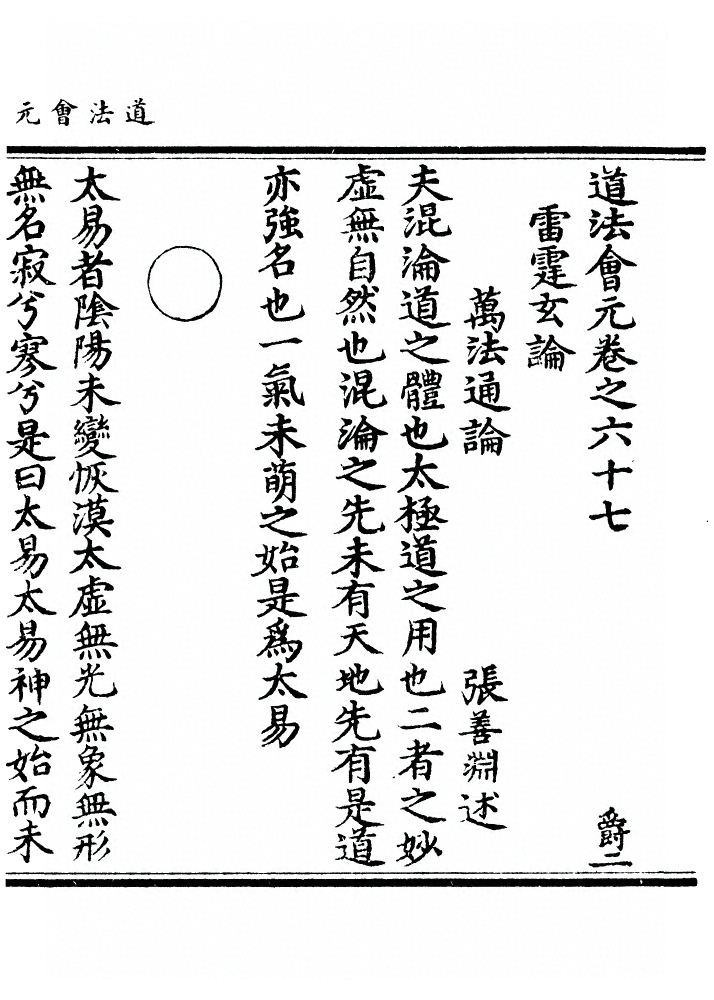 道法會元
道法會元卷之六十七
爵二
雷霆玄論
萬法通論
張善淵述
夫混淪道之體也太極道之用也二者之妙
虛無自然也混淪之先未有天地先有是道
亦強名也一氣未萌之始是爲太易
太易者陰陽未變恢漠太虛無光無象無形
無名寂兮寥兮是曰太易太易神之始而未